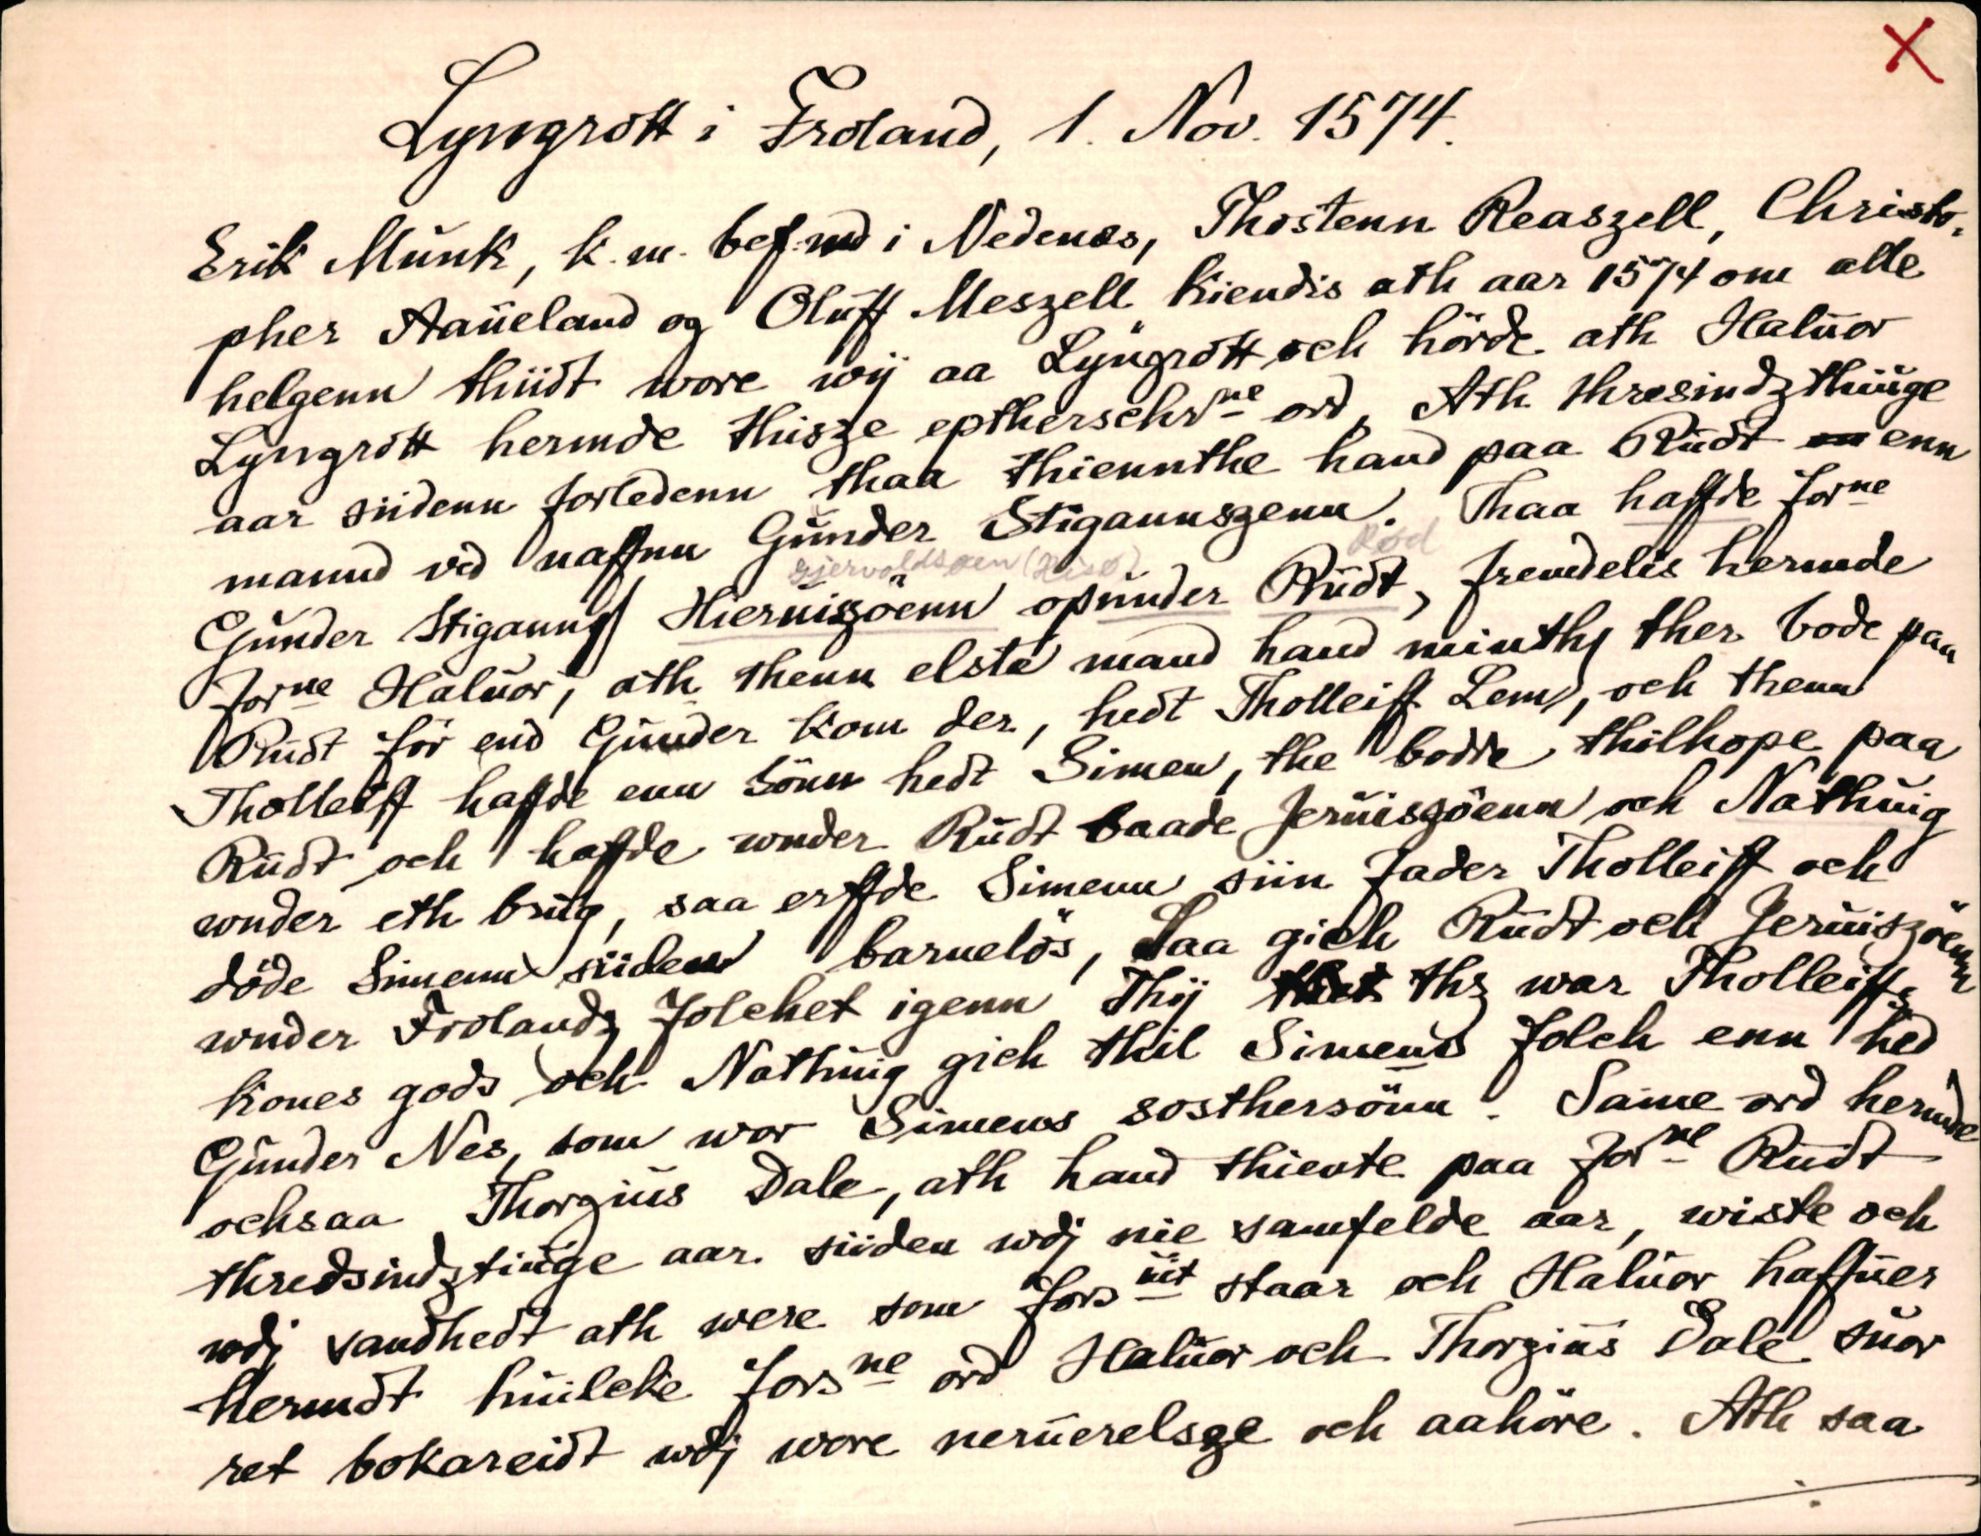 X
Lyngrott i Froland, 1. Nov. 1574.
Erik Munk, k. m. bef.md i Nedenes, Thostenn Reaszell, Christo-
pher Aaueland og Oluff Meszell kiendis ath aar 1574 om alle
helgenn thiidt wore wij aa Lyngrott och hörde ath Haluor
Lyngrott hermde thisze eptherschrne ord, Ath thresindzthiuge
aar siidenn forledenn thaa thiennthe hand paa Rudt enn
mannd ved naffnn Gunder Stigannszenn. Thaa haffde forne
Gjervoldsøen (Hisø) Rød
Gunder Stiganns Hieruiszöenn opunder Rudt, fremdelis hermde
forne Haluor, ath thenn elste mand hand minthis ther bode paa
Rudt för end Gunder kom der, hedt Tholleiff Lem, och thenn
Tholleiff haffde enn sönn hedt Simen, the bodde thilhope paa
Rudt och haffde wnder Rudt baade Jeruiszöenn och Nathuig
wnder eth brug, saa erffde Simenn siin fader Tholleiff och
döde Simenn siiden barnelös, Saa gich Rudt och Jeruiszöenn
wnder Frolandz folchet igenn Thij thz war Tholleiffs
kones gods och Nathuig gich thil Simens folch enn hed
Gunder Nes, som wor Simens sosthersönn. Same ord hermde
ochsaa Thorgius Dale, ath hand thiente paa forne Rudt
thredsindztiuge aar siiden wdj nie samfelde aar, wiste och
wdj sandhedt ath were som forsuit staar och Haluor haffuer
hermdt huilcke forsne ord Haluor och Thorgius Dale suor
ret bokareidt wdj wore neruerelsze och aahöre. Ath saa